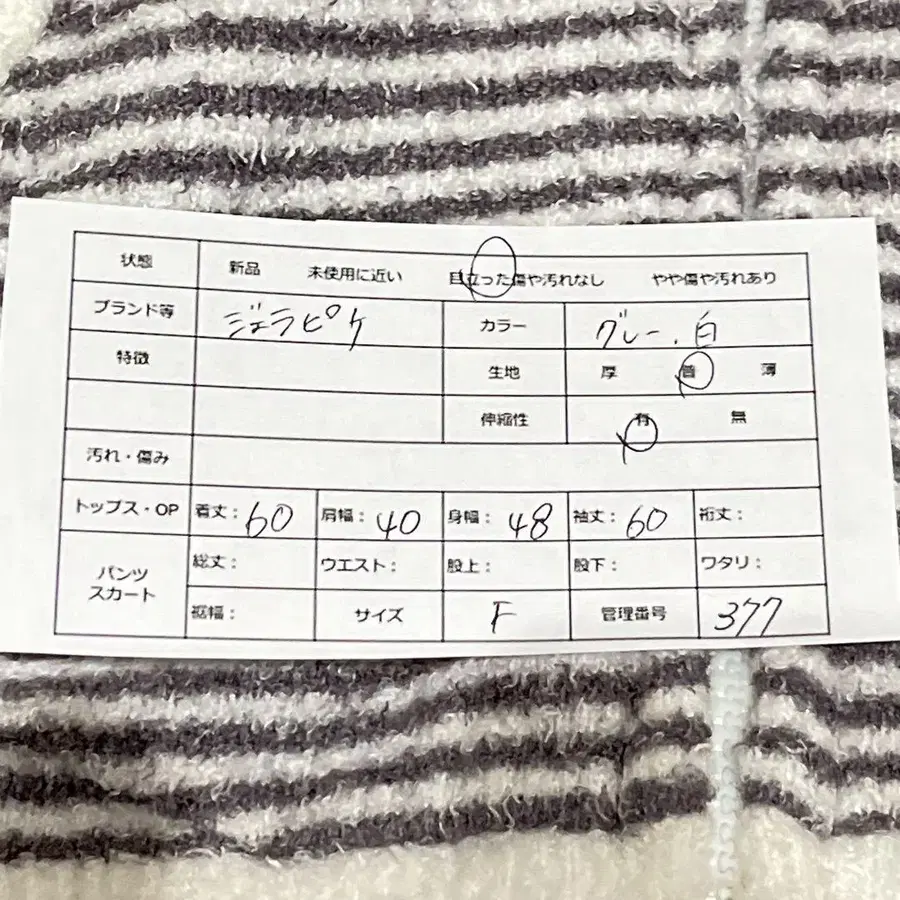 状態 新品 未使用に近い 目立った傷や汚れなし やや傷や汚れあり
ブランド等 ジェラピケ カラー グレー.白
特徴 生地 厚 普 薄
伸縮性 有 無
汚れ・傷み
トップス・OP 着丈：60 肩幅：40 身幅：48 袖丈：60 裄丈：
パンツ
スカート
総丈： ウエスト： 股上： 股下： ワタリ：
裾幅： サイズ F 管理番号 377